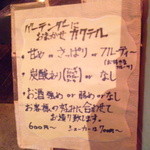 バーテンダーに
おまかせ カクテル
・甘め or さっぱり or フルーティー
・炭酸あり or なし
・お酒 強め or 弱め or なし
お客様の好みに合わせて
お造り致します。
600円〜 700円〜